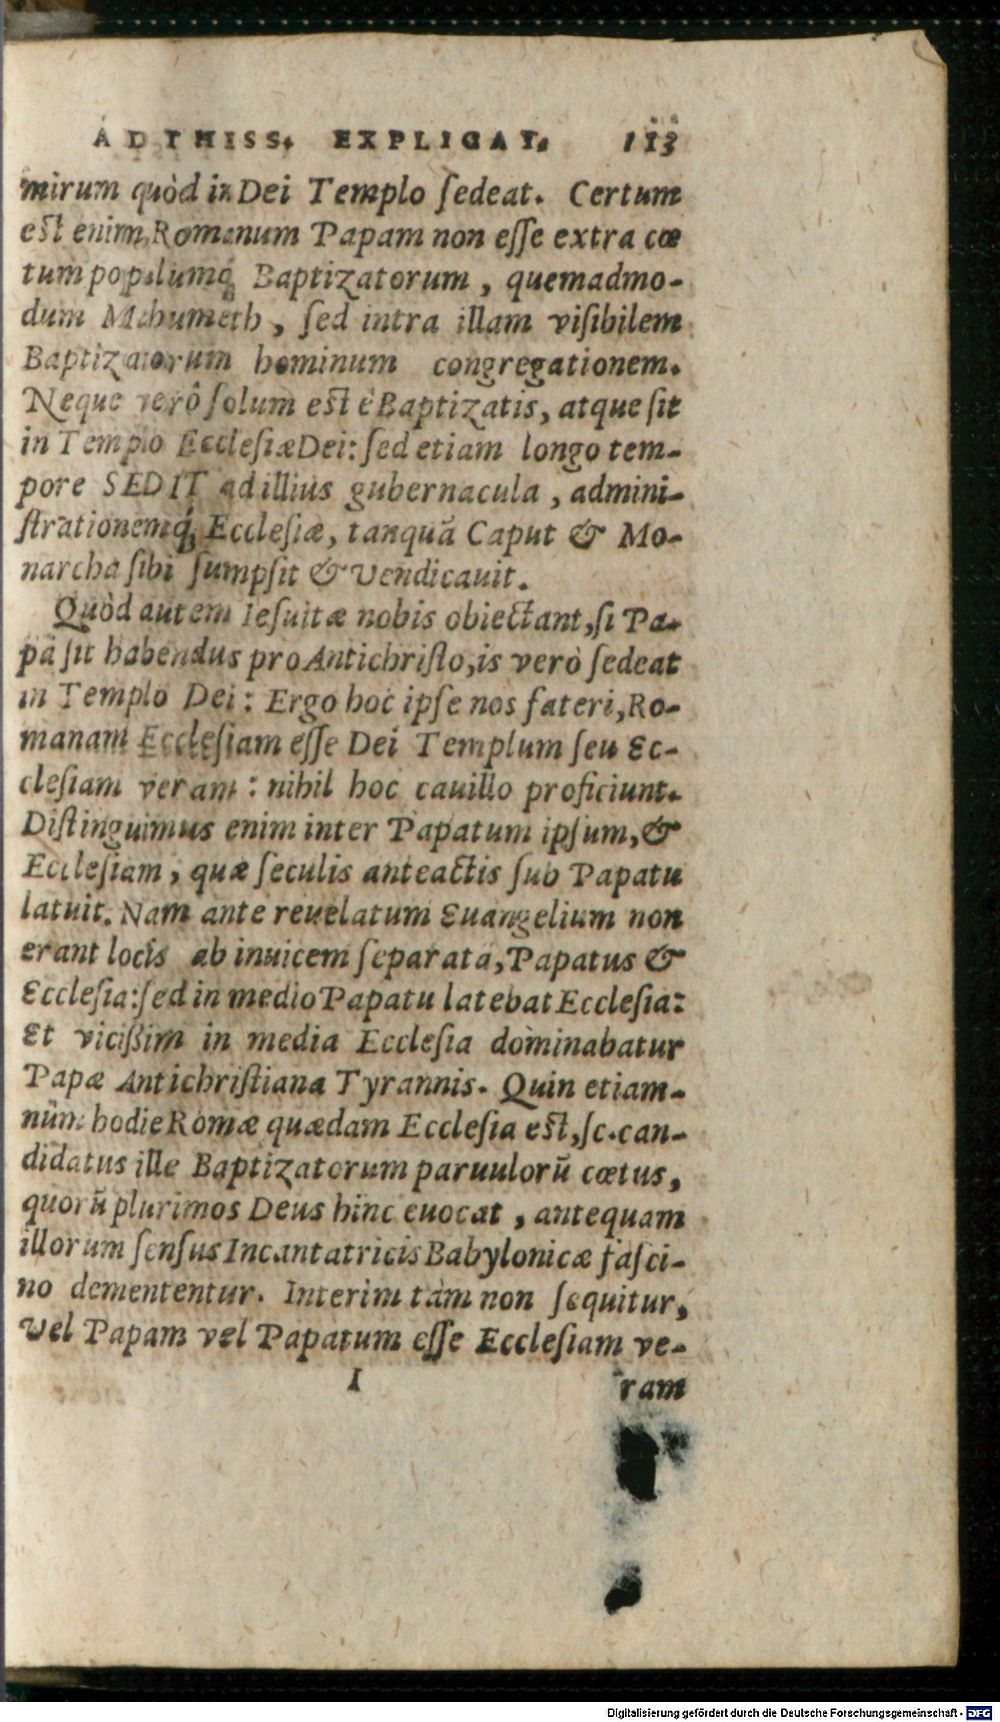 AD THESS. EXPLICAT. 113
mirum quòd in Dei Templo ſedeat. Certum
eſt enim, Romanum Papam non eſſe extra cœ
tum populumq́; Baptizatorum, quemadmo-
dum Mahumeth, ſed intra illam viſibilem
Baptizatorum hominum congregationem.
Neque verô ſolum eſt è Baptizatis, atque ſit
in Templo Eccleſiæ Dei: ſed etiam longo tem-
pore SEDIT ad illius gubernacula, admini-
ſtrationemq́; Eccleſiæ, tanquã Caput & Mo-
narcha ſibi ſumpſit & vendicauit.
Quòd autem Ieſuitæ nobis obiectant, ſi Pa-
pã ſit habendus pro Antichriſto, is verò ſedeat
in Templo Dei: Ergo hoc ipſe nos fateri, Ro-
manam Eccleſiam eſſe Dei Templum ſeu Ec-
cleſiam veram: nihil hoc cauillo proficiunt.
Diſtinguimus enim inter Papatum ipſum, &
Eccleſiam, quæ ſeculis anteactis ſub Papatu
latuit. Nam ante reuelatum Euangelium non
erant locis ab inuicem ſeparata, Papatus &
Eccleſia: ſed in medio Papatu latebat Eccleſia:
Et viciſsim in media Eccleſia dominabatur
Papæ Antichriſtiana Tyrannis. Quin etiam-
nùm hodie Romæ quædam Eccleſia eſt, ſc. can-
didatus ille Baptizatorum paruulorũ cœtus,
quorũ plurimos Deus hinc euocat, antequam
illorum ſenſus Incantatricis Babylonicæ faſci-
no demententur. Interim tàm non ſequitur,
vel Papam vel Papatum eſſe Eccleſiam ve-
I ram
Digitalisierung gefördert durch die Deutsche Forschungsgemeinschaft - DFG